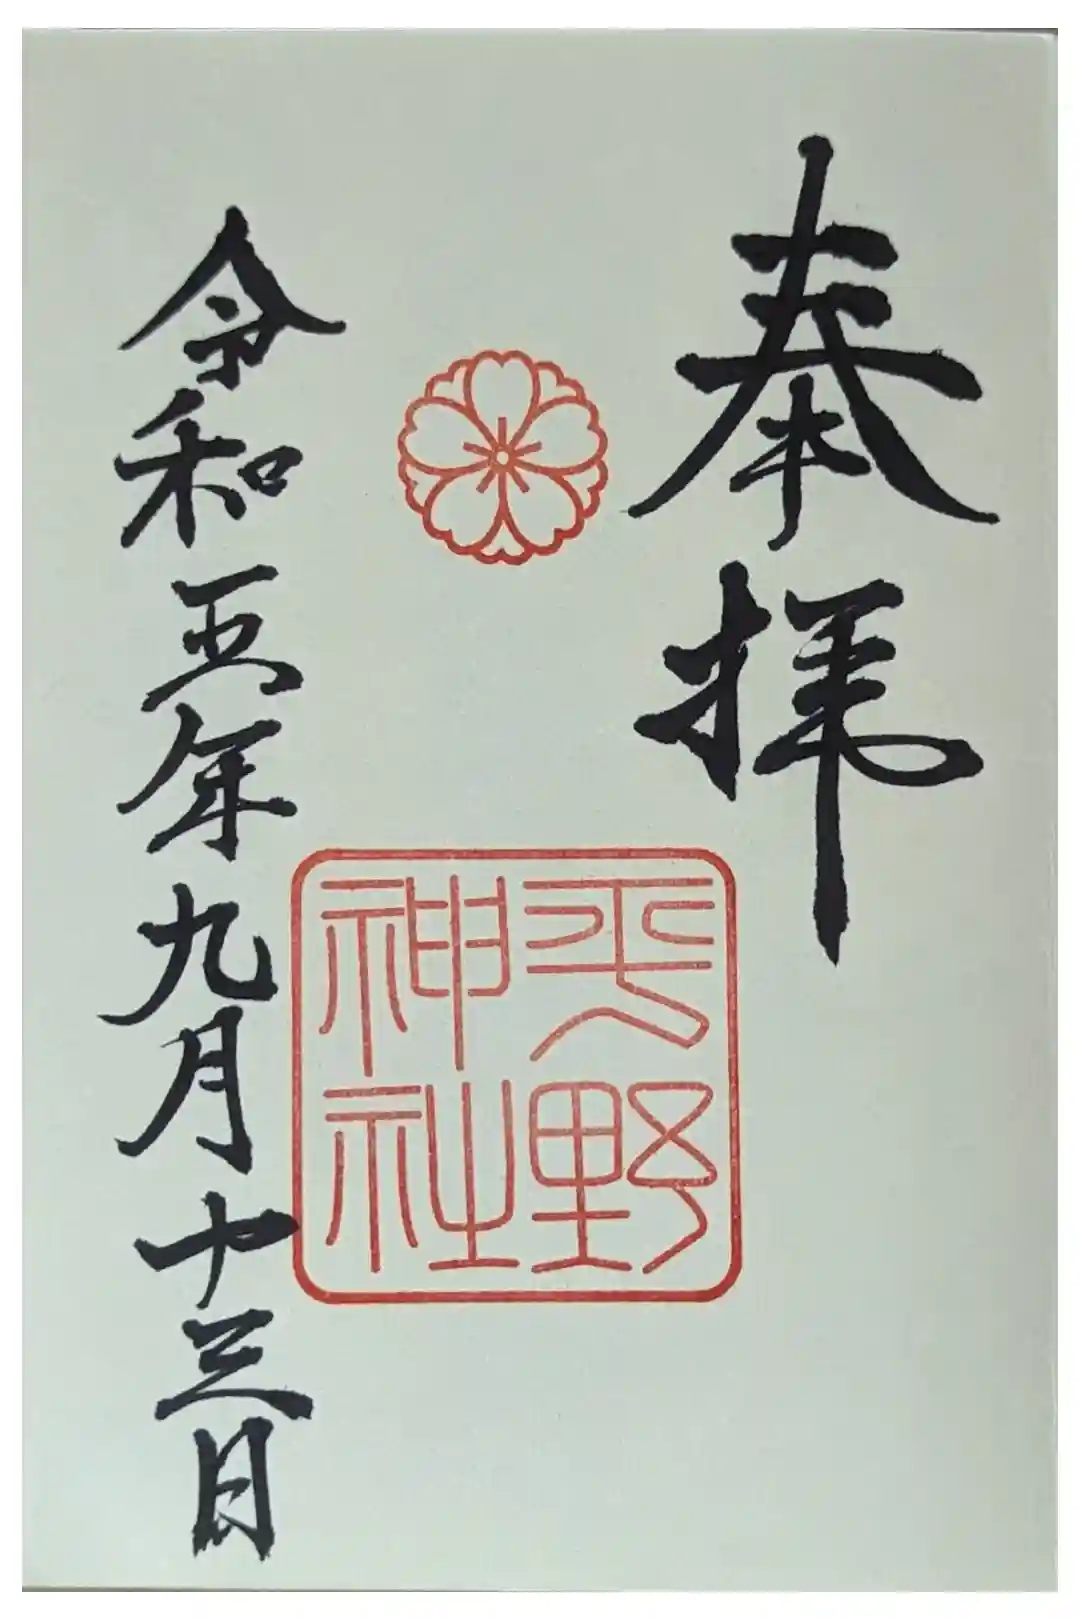 奉拝
平野
神社
令和五年九月十三日